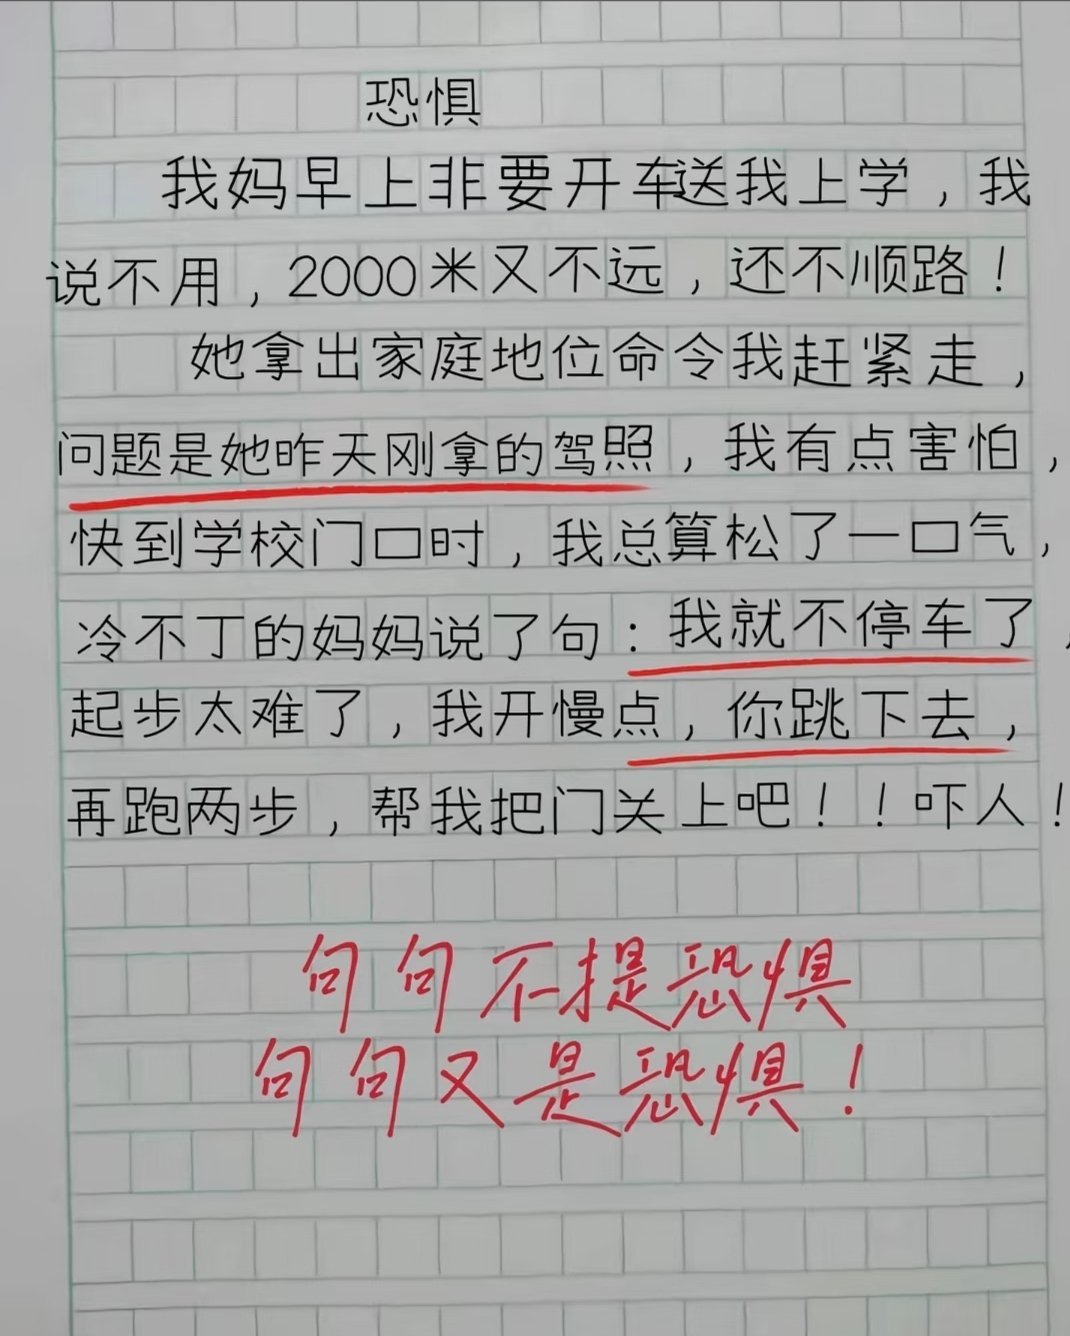 恐惧
我妈早上非要开车送我上学，我
说不用，2000米又不远，还不顺路！
她拿出家庭地位命令我赶紧走，
问题是她昨天刚拿的驾照，我有点害怕，
快到学校门口时，我总算松了一口气，
冷不丁的妈妈说了句：我就不停车了，
起步太难了，我开慢点，你跳下去，
再跑两步，帮我把门关上吧！！吓人！
句句不提恐惧
句句又是恐惧！